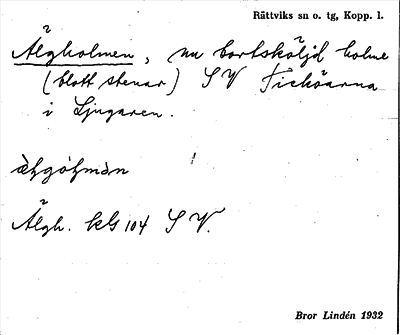 Rättviks sn o. tg, Kopp. l.
Älgholmen, nu bortsköljd holme
(blott stenar) SV Fisköarna
i Ljugaren.
Älgh. kbl 104 SV.
Bror Lindén 1932